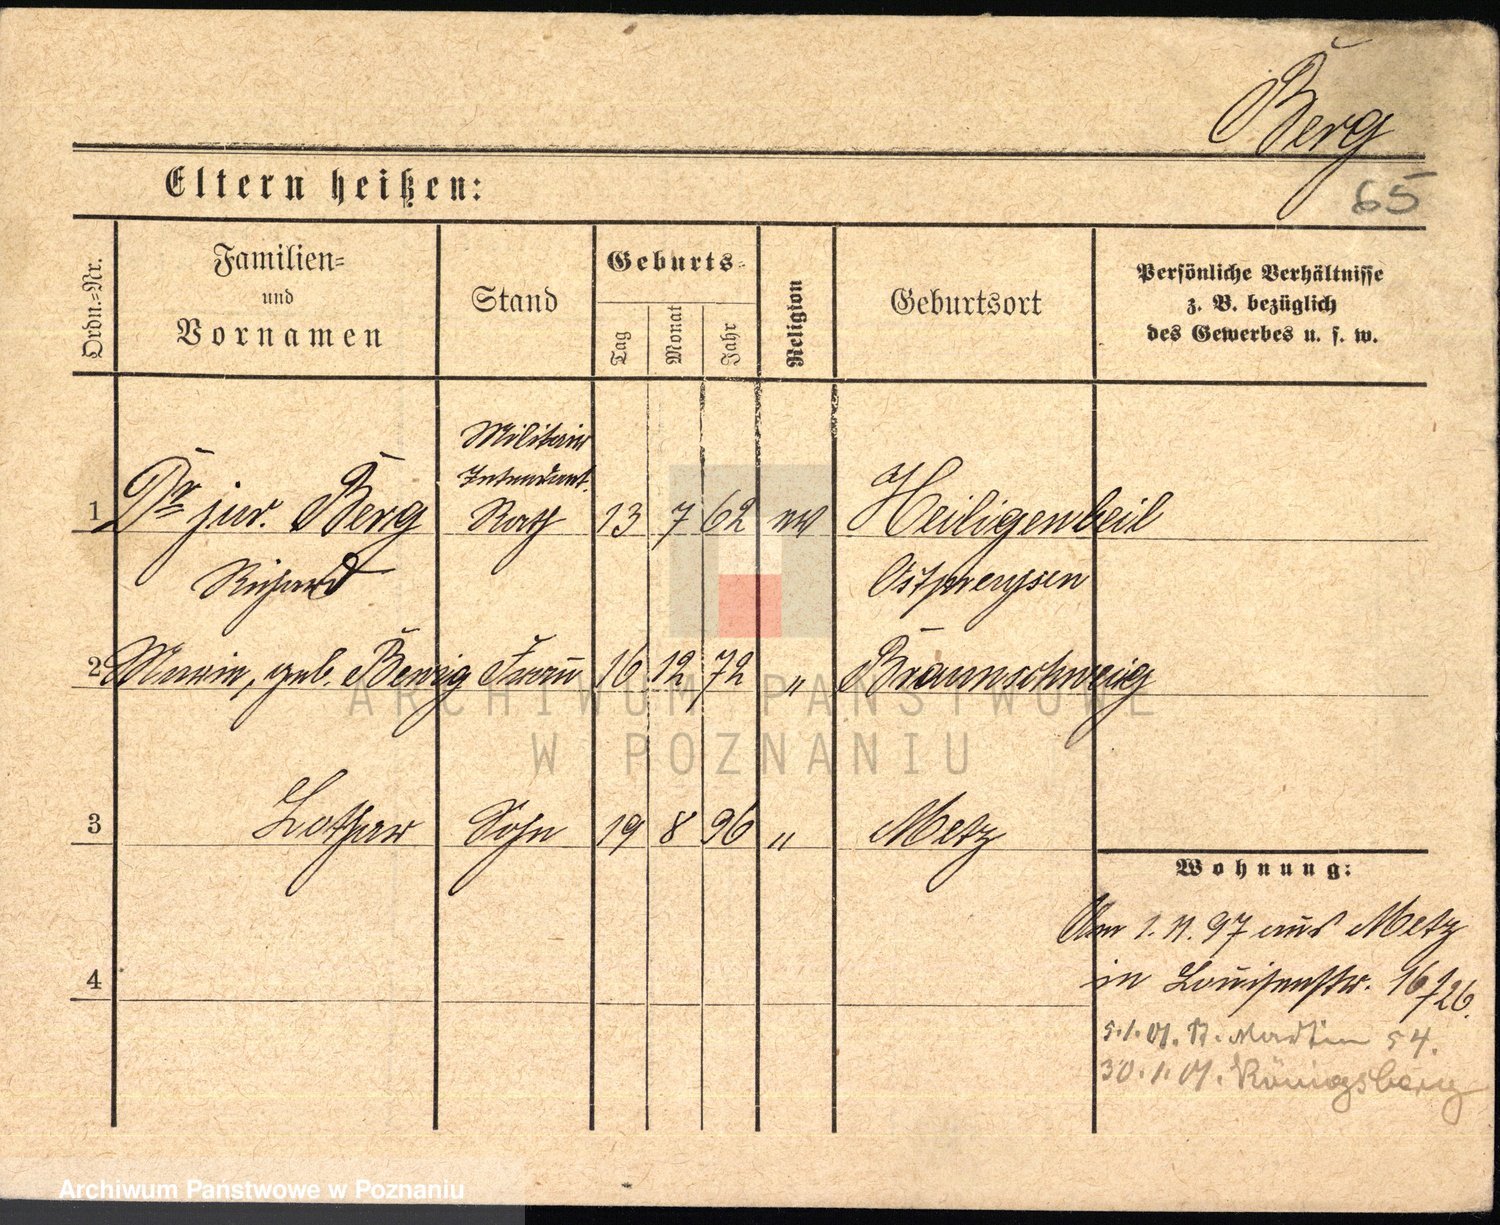 Berg
65
Eltern heißen:
Ordn.-Nr.
Familien-
und
Vornamen
Stand
Geburts-
Tag
Monat
Jahr
Religion
Geburtsort
Persönliche Verhältnisse
z. B. bezüglich
des Gewerbes u. s. w.
Militair
Intendant.
1 Dr jur. Berg Rath 13 7 62 ev Heiligenbeil
Richard Ostpreussen
2 Marie, geb. Frau 16 12 72 " Braunschweig
3 Lothar Sohn 19 8 96 " Metz
4
Wohnung:
Am 1. 11. 97 aus Metz
in Louisenstr. 16
5.1.01. St. Martin 54.
30.1.01. Königsberg
ARCHIWUM PAŃSTWOWE
W POZNANIU
Archiwum Państwowe w Poznaniu